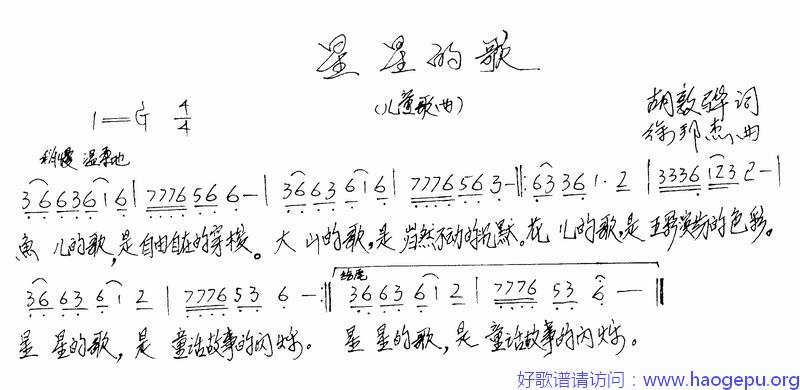 星星的歌
(儿童歌曲)
1=G 4/4
胡敦骅 词
徐邦杰 曲
稍慢 温柔地
3663616 | 777656 6 – | 3663616 | 777656 3 – |: 6336 1· 2 | 3336 123 2 – |
鱼儿的歌,是自由自在的穿梭。大山的歌,是岿然不动的沉默。花儿的歌,是五彩缤纷的色彩。
结尾
36 63 61 2 | 777653 6 – :| 36 63 61 2 | 7776 53 6 – ‖
星星的歌,是童话故事的闪烁。星星的歌,是童话故事的闪烁。
好歌谱请访问:www.haogepu.org